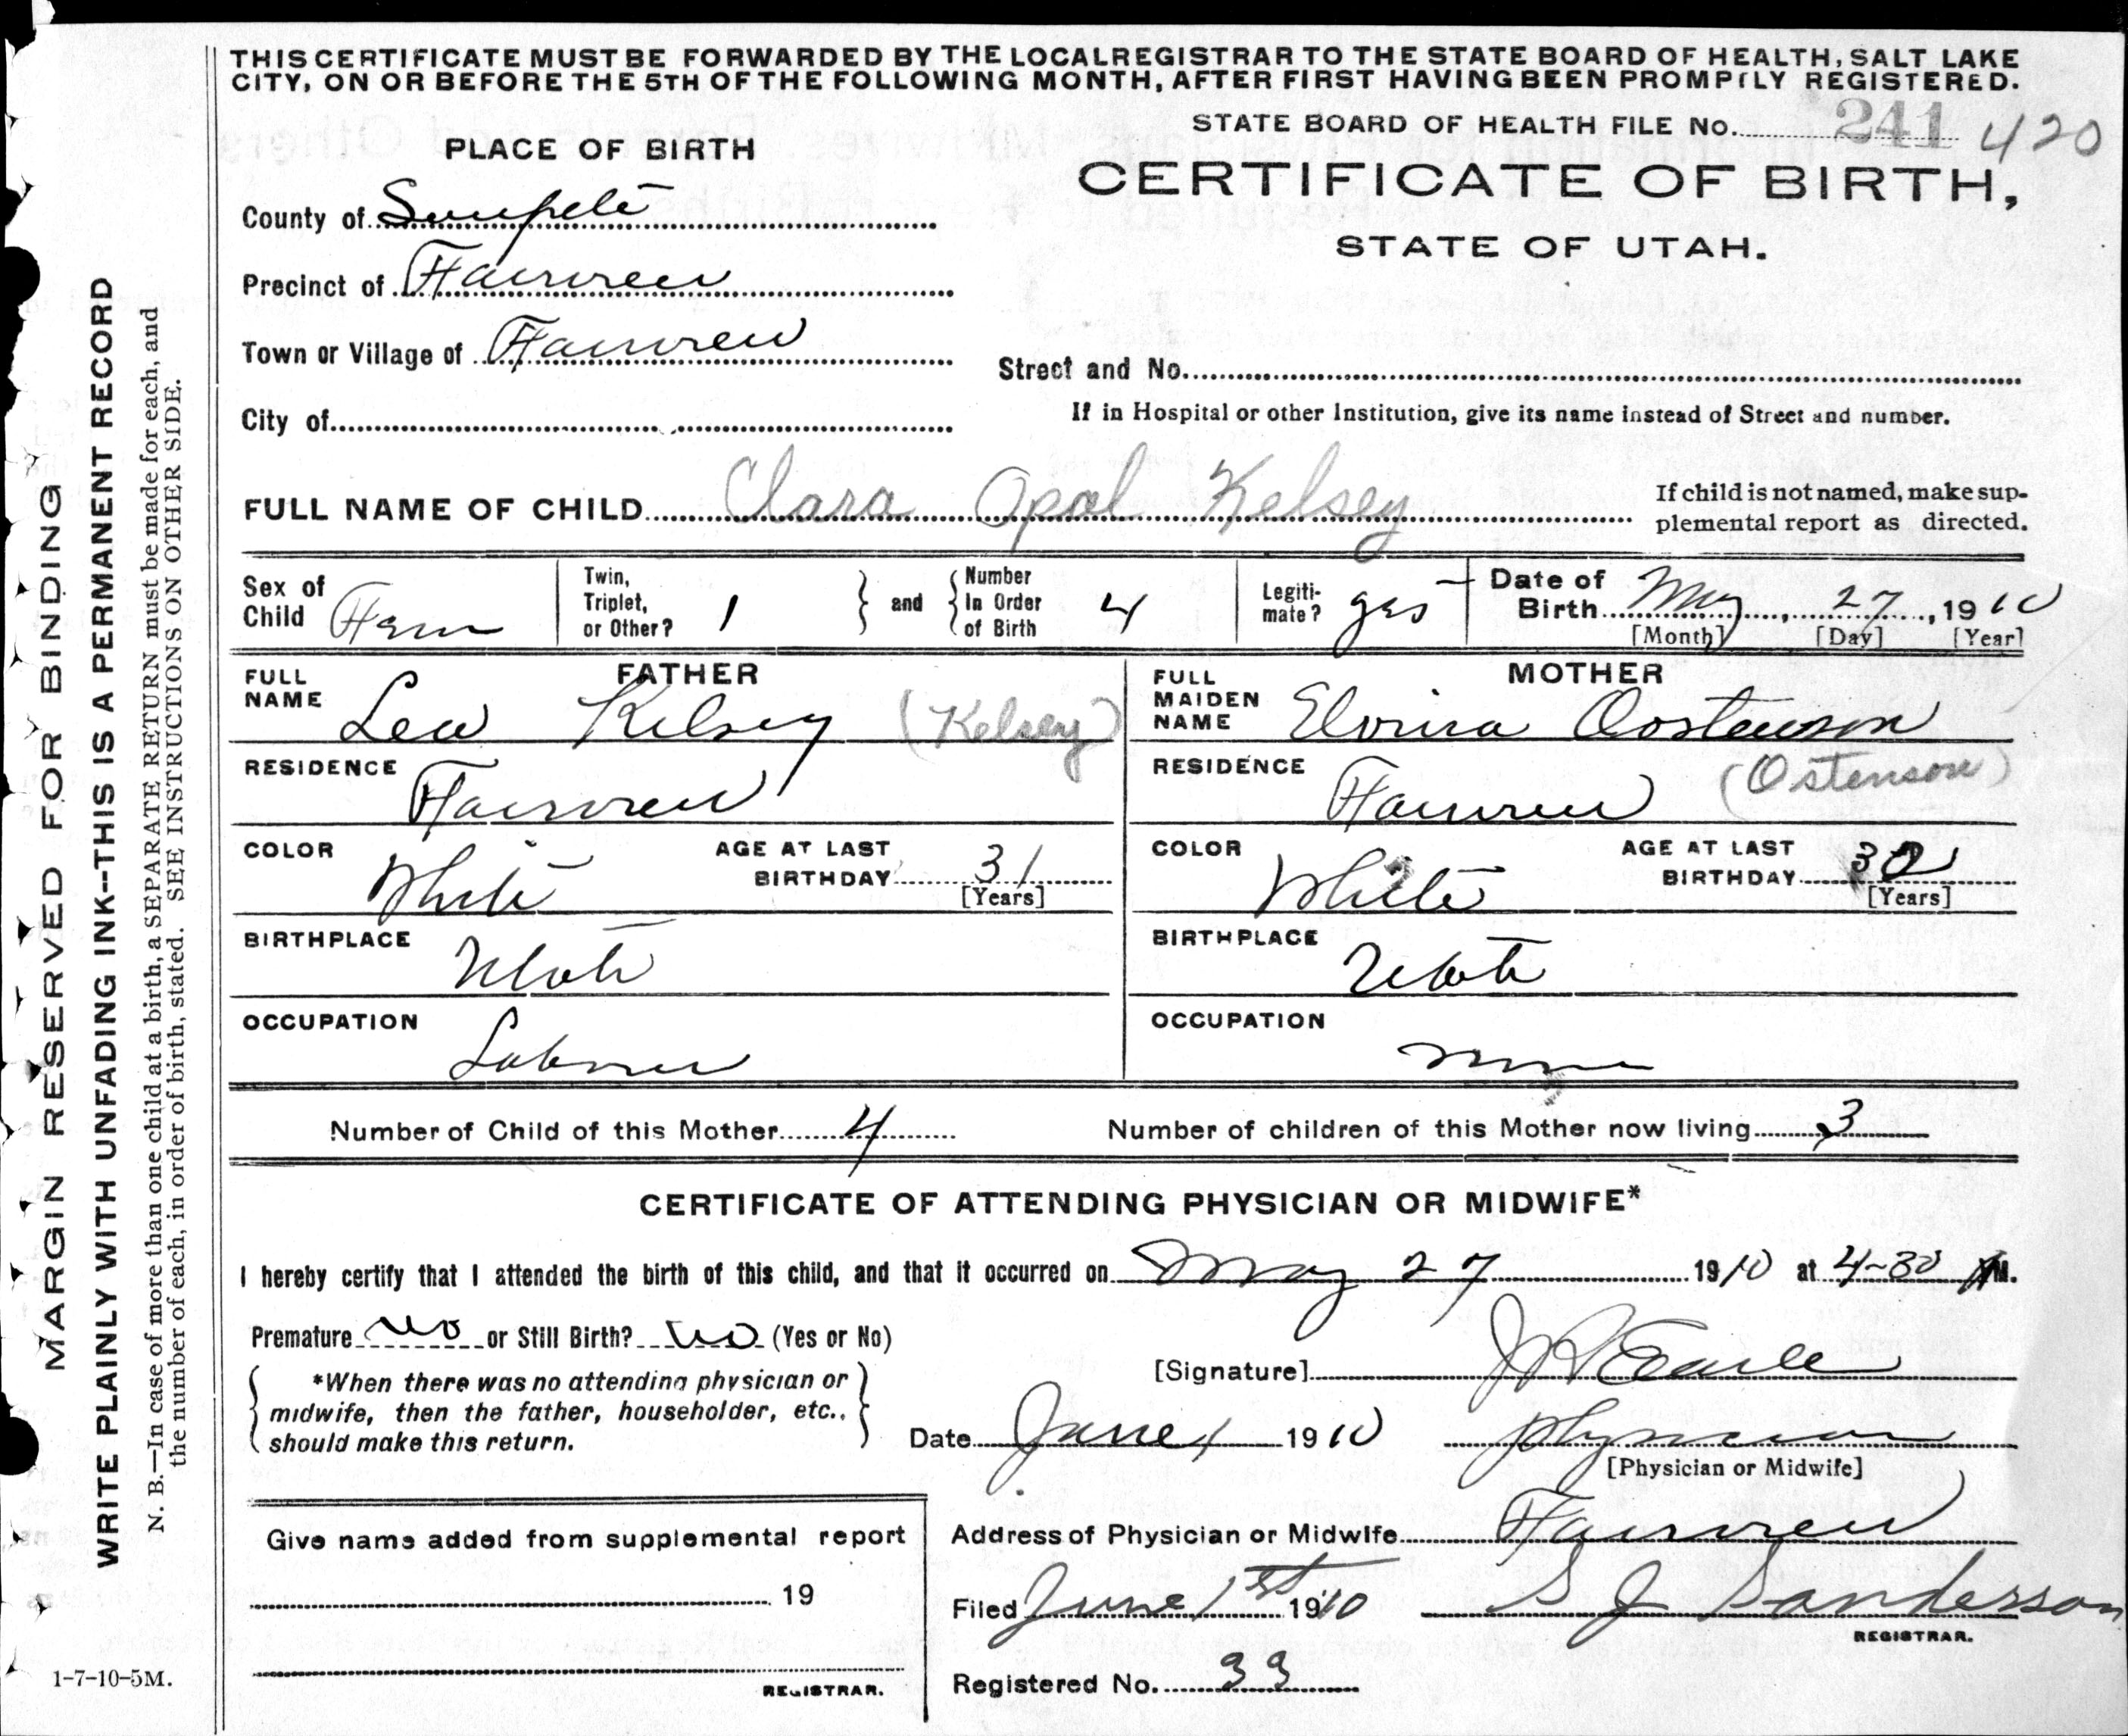 THIS CERTIFICATE MUST BE FORWARDED BY THE LOCAL REGISTRAR TO THE STATE BOARD OF HEALTH, SALT LAKE
CITY, ON OR BEFORE THE 5TH OF THE FOLLOWING MONTH, AFTER FIRST HAVING BEEN PROMPTLY REGISTERED.
STATE BOARD OF HEALTH FILE No. 241 420
PLACE OF BIRTH
CERTIFICATE OF BIRTH,
STATE OF UTAH.
County of Sanpete
Precinct of Fairview
Town or Village of Fairview
Street and No.
City of
If in Hospital or other Institution, give its name instead of Street and number.
FULL NAME OF CHILD Clara Opal Kelsey
If child is not named, make sup-
plemental report as directed.
Sex of Child Fem
Twin, Triplet, or Other? 1
and
Number In Order of Birth 4
Legiti-
mate? yes
Date of Birth May, 27, 1910
[Month] [Day] [Year]
FATHER
FULL NAME Lew Kelsey (Kelsey)
RESIDENCE Fairview
COLOR White
AGE AT LAST BIRTHDAY 31
[Years]
BIRTHPLACE Utah
OCCUPATION Laborer
MOTHER
FULL MAIDEN NAME Elvina Oostenson
(Ostenson)
RESIDENCE Fairview
COLOR White
AGE AT LAST BIRTHDAY 30
[Years]
BIRTHPLACE Utah
OCCUPATION none
Number of Child of this Mother 4
Number of children of this Mother now living 3
CERTIFICATE OF ATTENDING PHYSICIAN OR MIDWIFE*
I hereby certify that I attended the birth of this child, and that it occurred on May 27 1910 at 4-30 M.
Premature no or Still Birth? no (Yes or No)
*When there was no attending physician or
midwife, then the father, householder, etc.,
should make this return.
[Signature] Earle
Date June 1 1910
physician
[Physician or Midwife]
Address of Physician or Midwife Fairview
Give name added from supplemental report
19
REGISTRAR.
Filed June 1st 1910 S J Sanderson
REGISTRAR.
Registered No. 33
MARGIN RESERVED FOR BINDING
WRITE PLAINLY WITH UNFADING INK--THIS IS A PERMANENT RECORD
N. B.—In case of more than one child at a birth, a SEPARATE RETURN must be made for each, and
the number of each, in order of birth, stated. SEE INSTRUCTIONS ON OTHER SIDE.
1-7-10-5M.